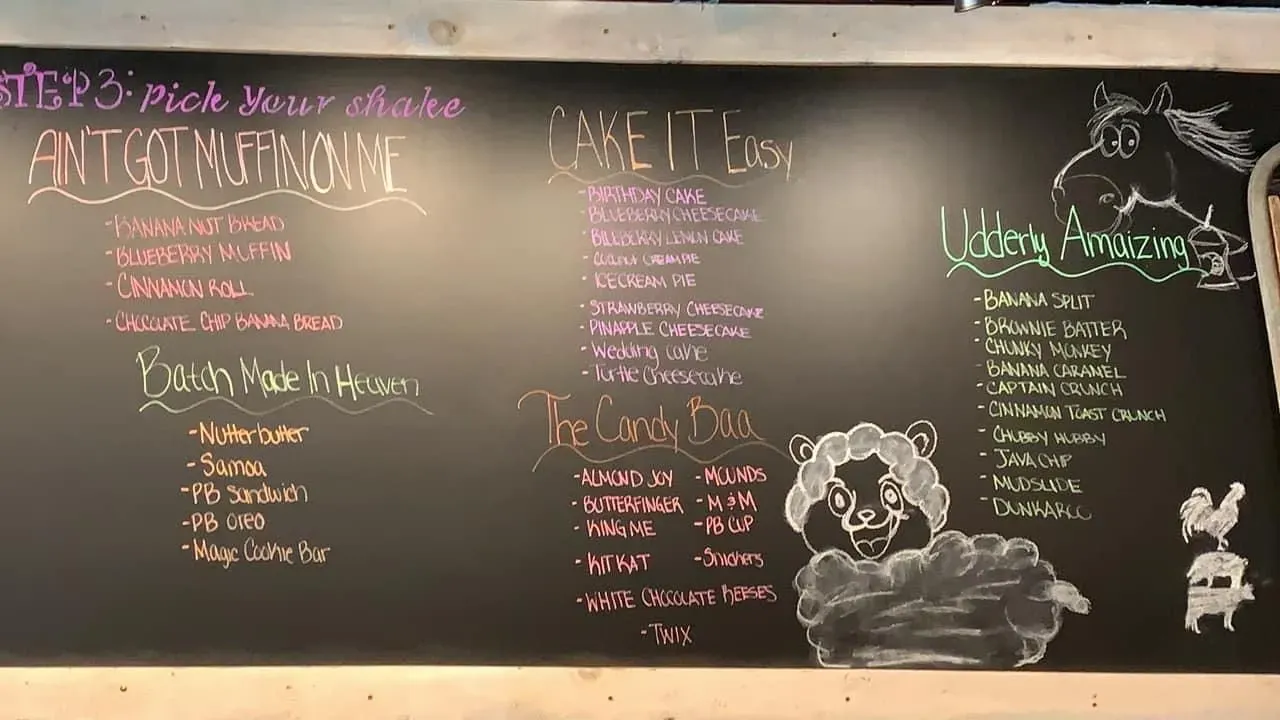 STEP 3: Pick Your shake
AIN'T GOT MUFFIN ON ME
- BANANA NUT BREAD
- BLUEBERRY MUFFIN
- CINNAMON ROLL
- CHOCOLATE CHIP BANANA BREAD
Batch Made In Heaven
- Nutterbutter
- Samoa
- PB Sandwich
- PB Oreo
- Magic Cookie Bar
CAKE IT Easy
- BIRTHDAY CAKE
- BLUEBERRY CHEESECAKE
- BLUEBERRY LEMON CAKE
- COCONUT CREAM PIE
- ICECREAM PIE
- STRAWBERRY CHEESECAKE
- PINAPPLE CHEESECAKE
- Wedding cake
- Turtle Cheesecake
The Candy Baa
- ALMOND JOY - MOUNDS
- BUTTERFINGER - M & M
- KING ME - PB CUP
- KIT KAT - Snickers
- WHITE CHOCOLATE REESES
- TWIX
Udderly Amaizing
- BANANA SPLIT
- BROWNIE BATTER
- CHUNKY MONKEY
- BANANA CARAMEL
- CAPTAIN CRUNCH
- CINNAMON TOAST CRUNCH
- CHUBBY HUBBY
- JAVA CHIP
- MUDSLIDE
- DUNKAROO